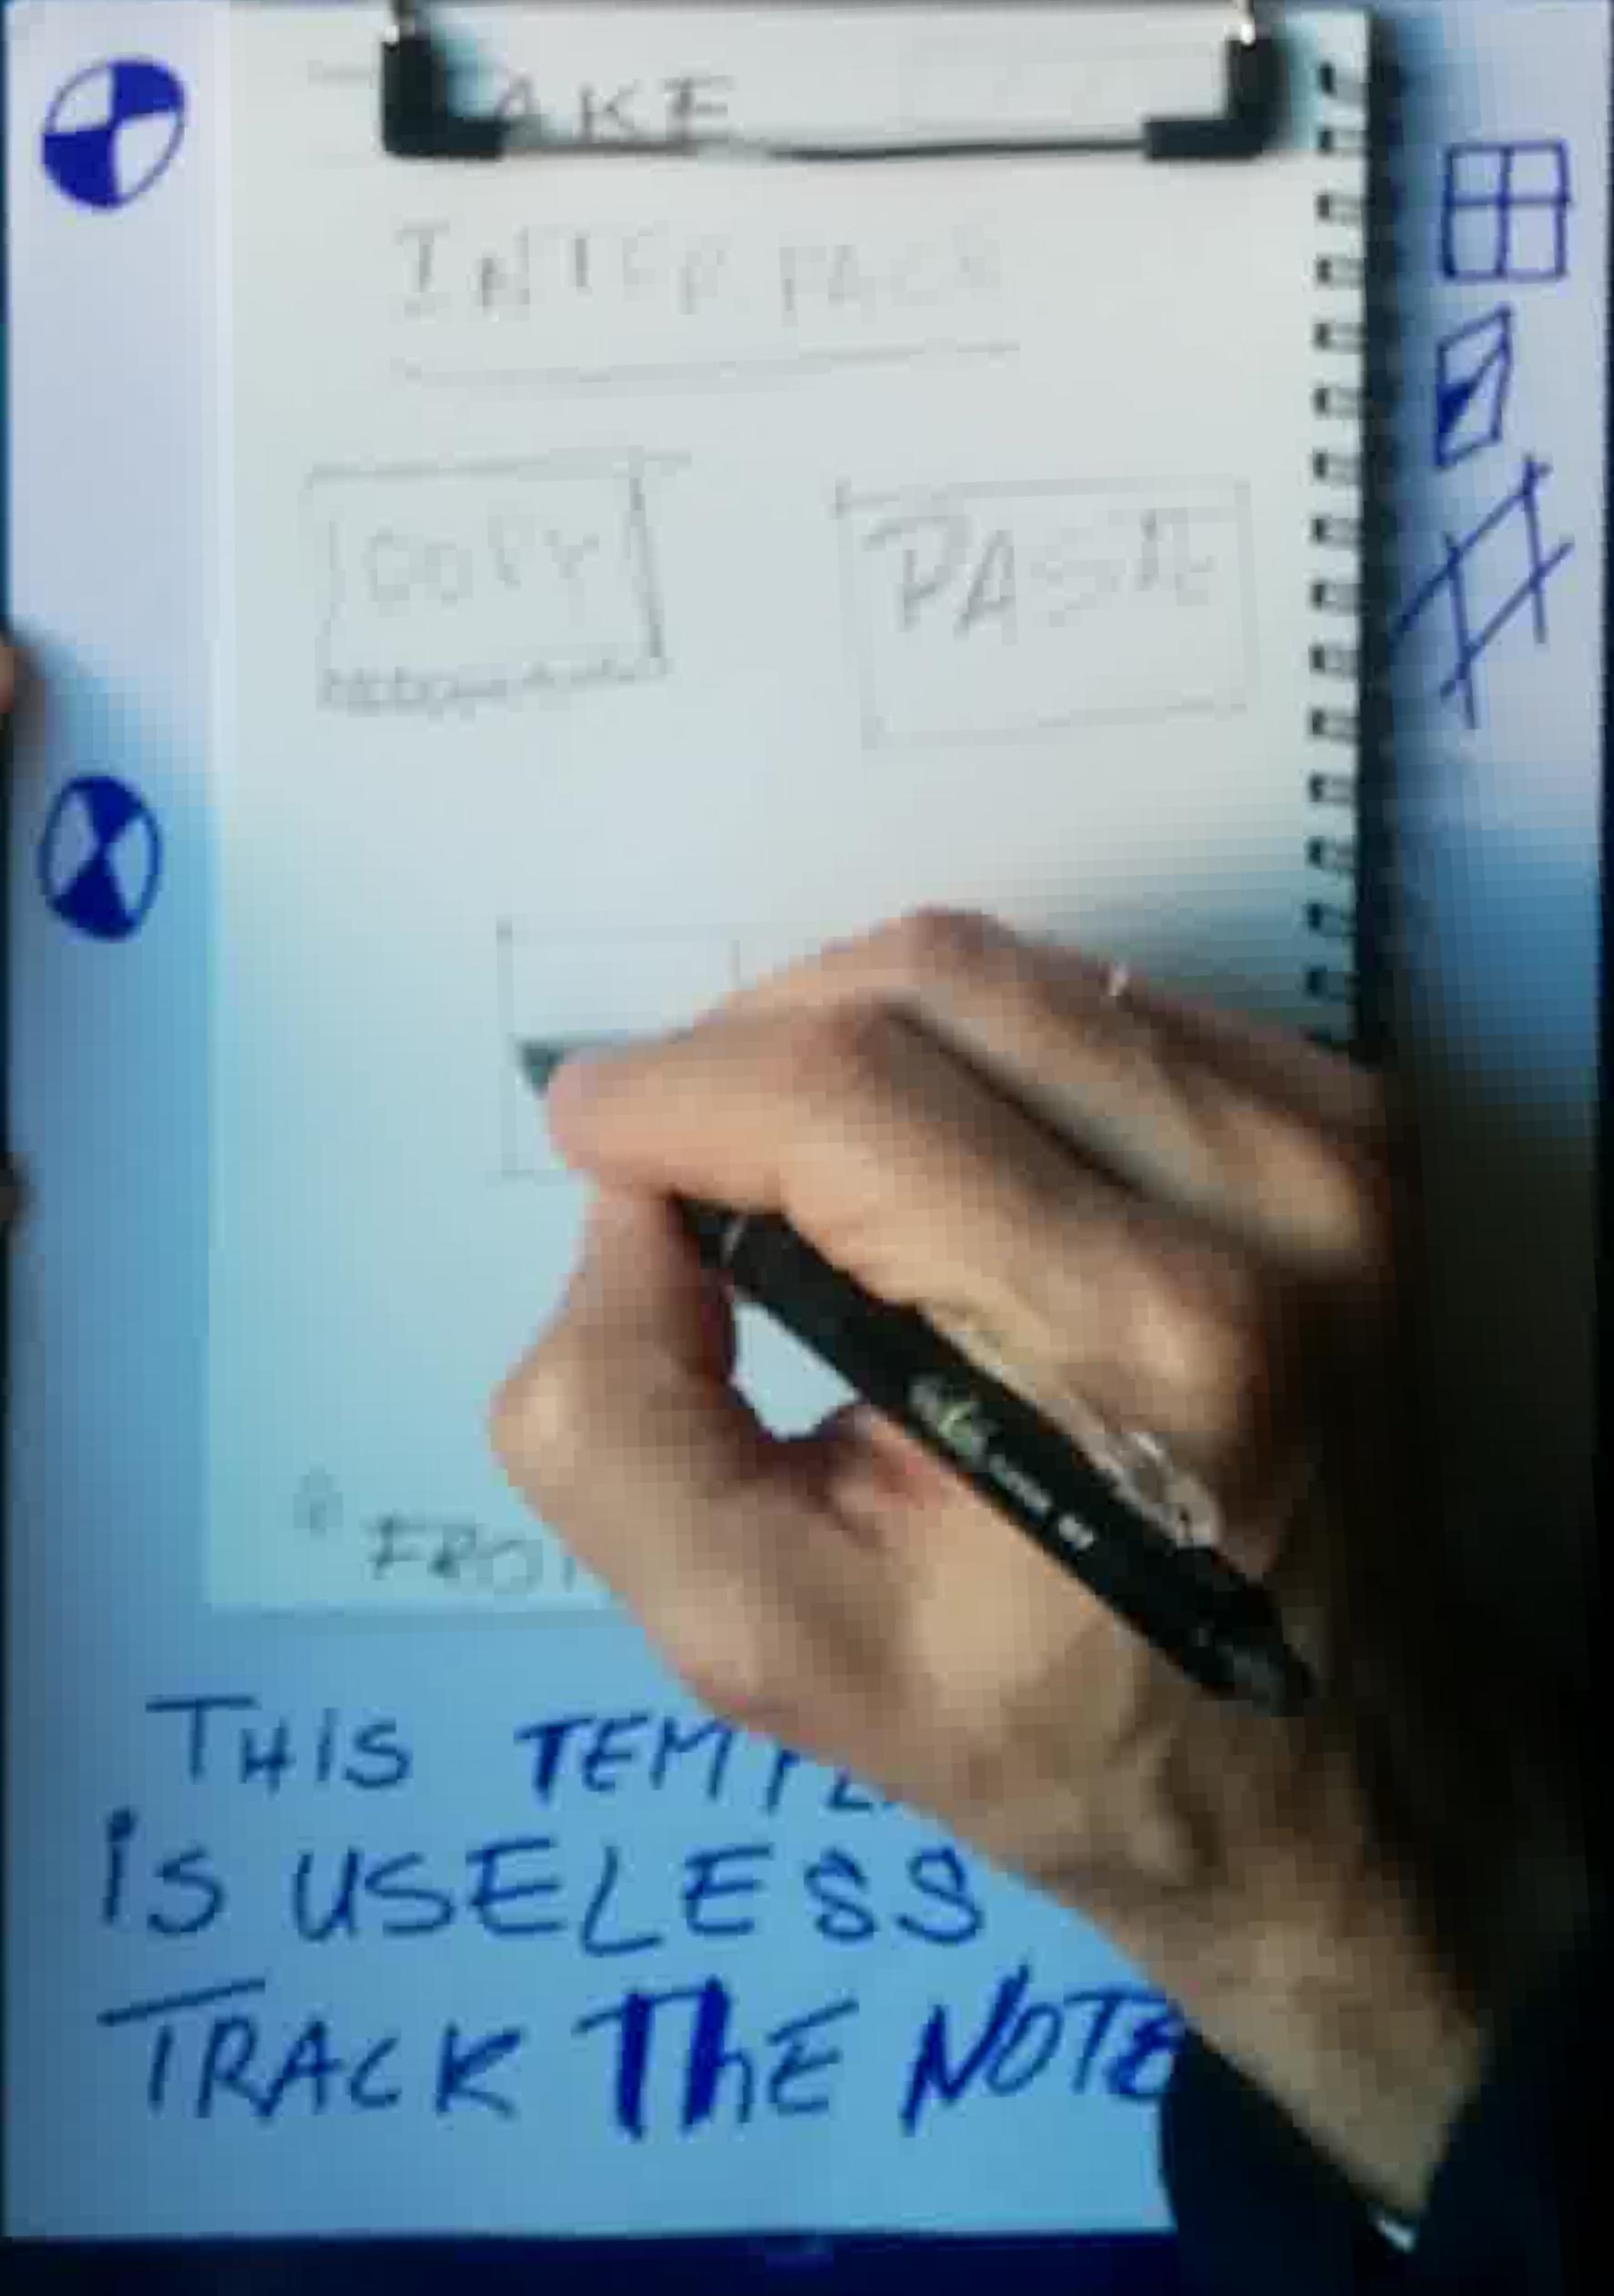 AKE
INTERFACE
COPY
PASTE
FRO
THIS TEMPL
is USELESS
TRACK ThE NOTE